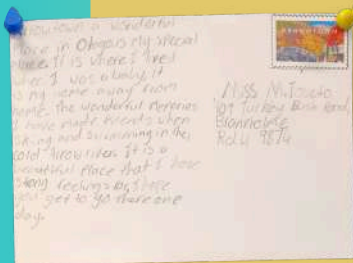 Arrowtown a wonderful
Place in Otago is my special
place. It is where I lived
when I was a baby it
is my home away from
home. The wonderful memories
I have made friends when
biking and swimming in the
cold Arrow river. It is a
beautiful Place that I have
strong feelings
you get to go there one
day.
ARROWTOWN
Miss M
Turkey Bush Road,